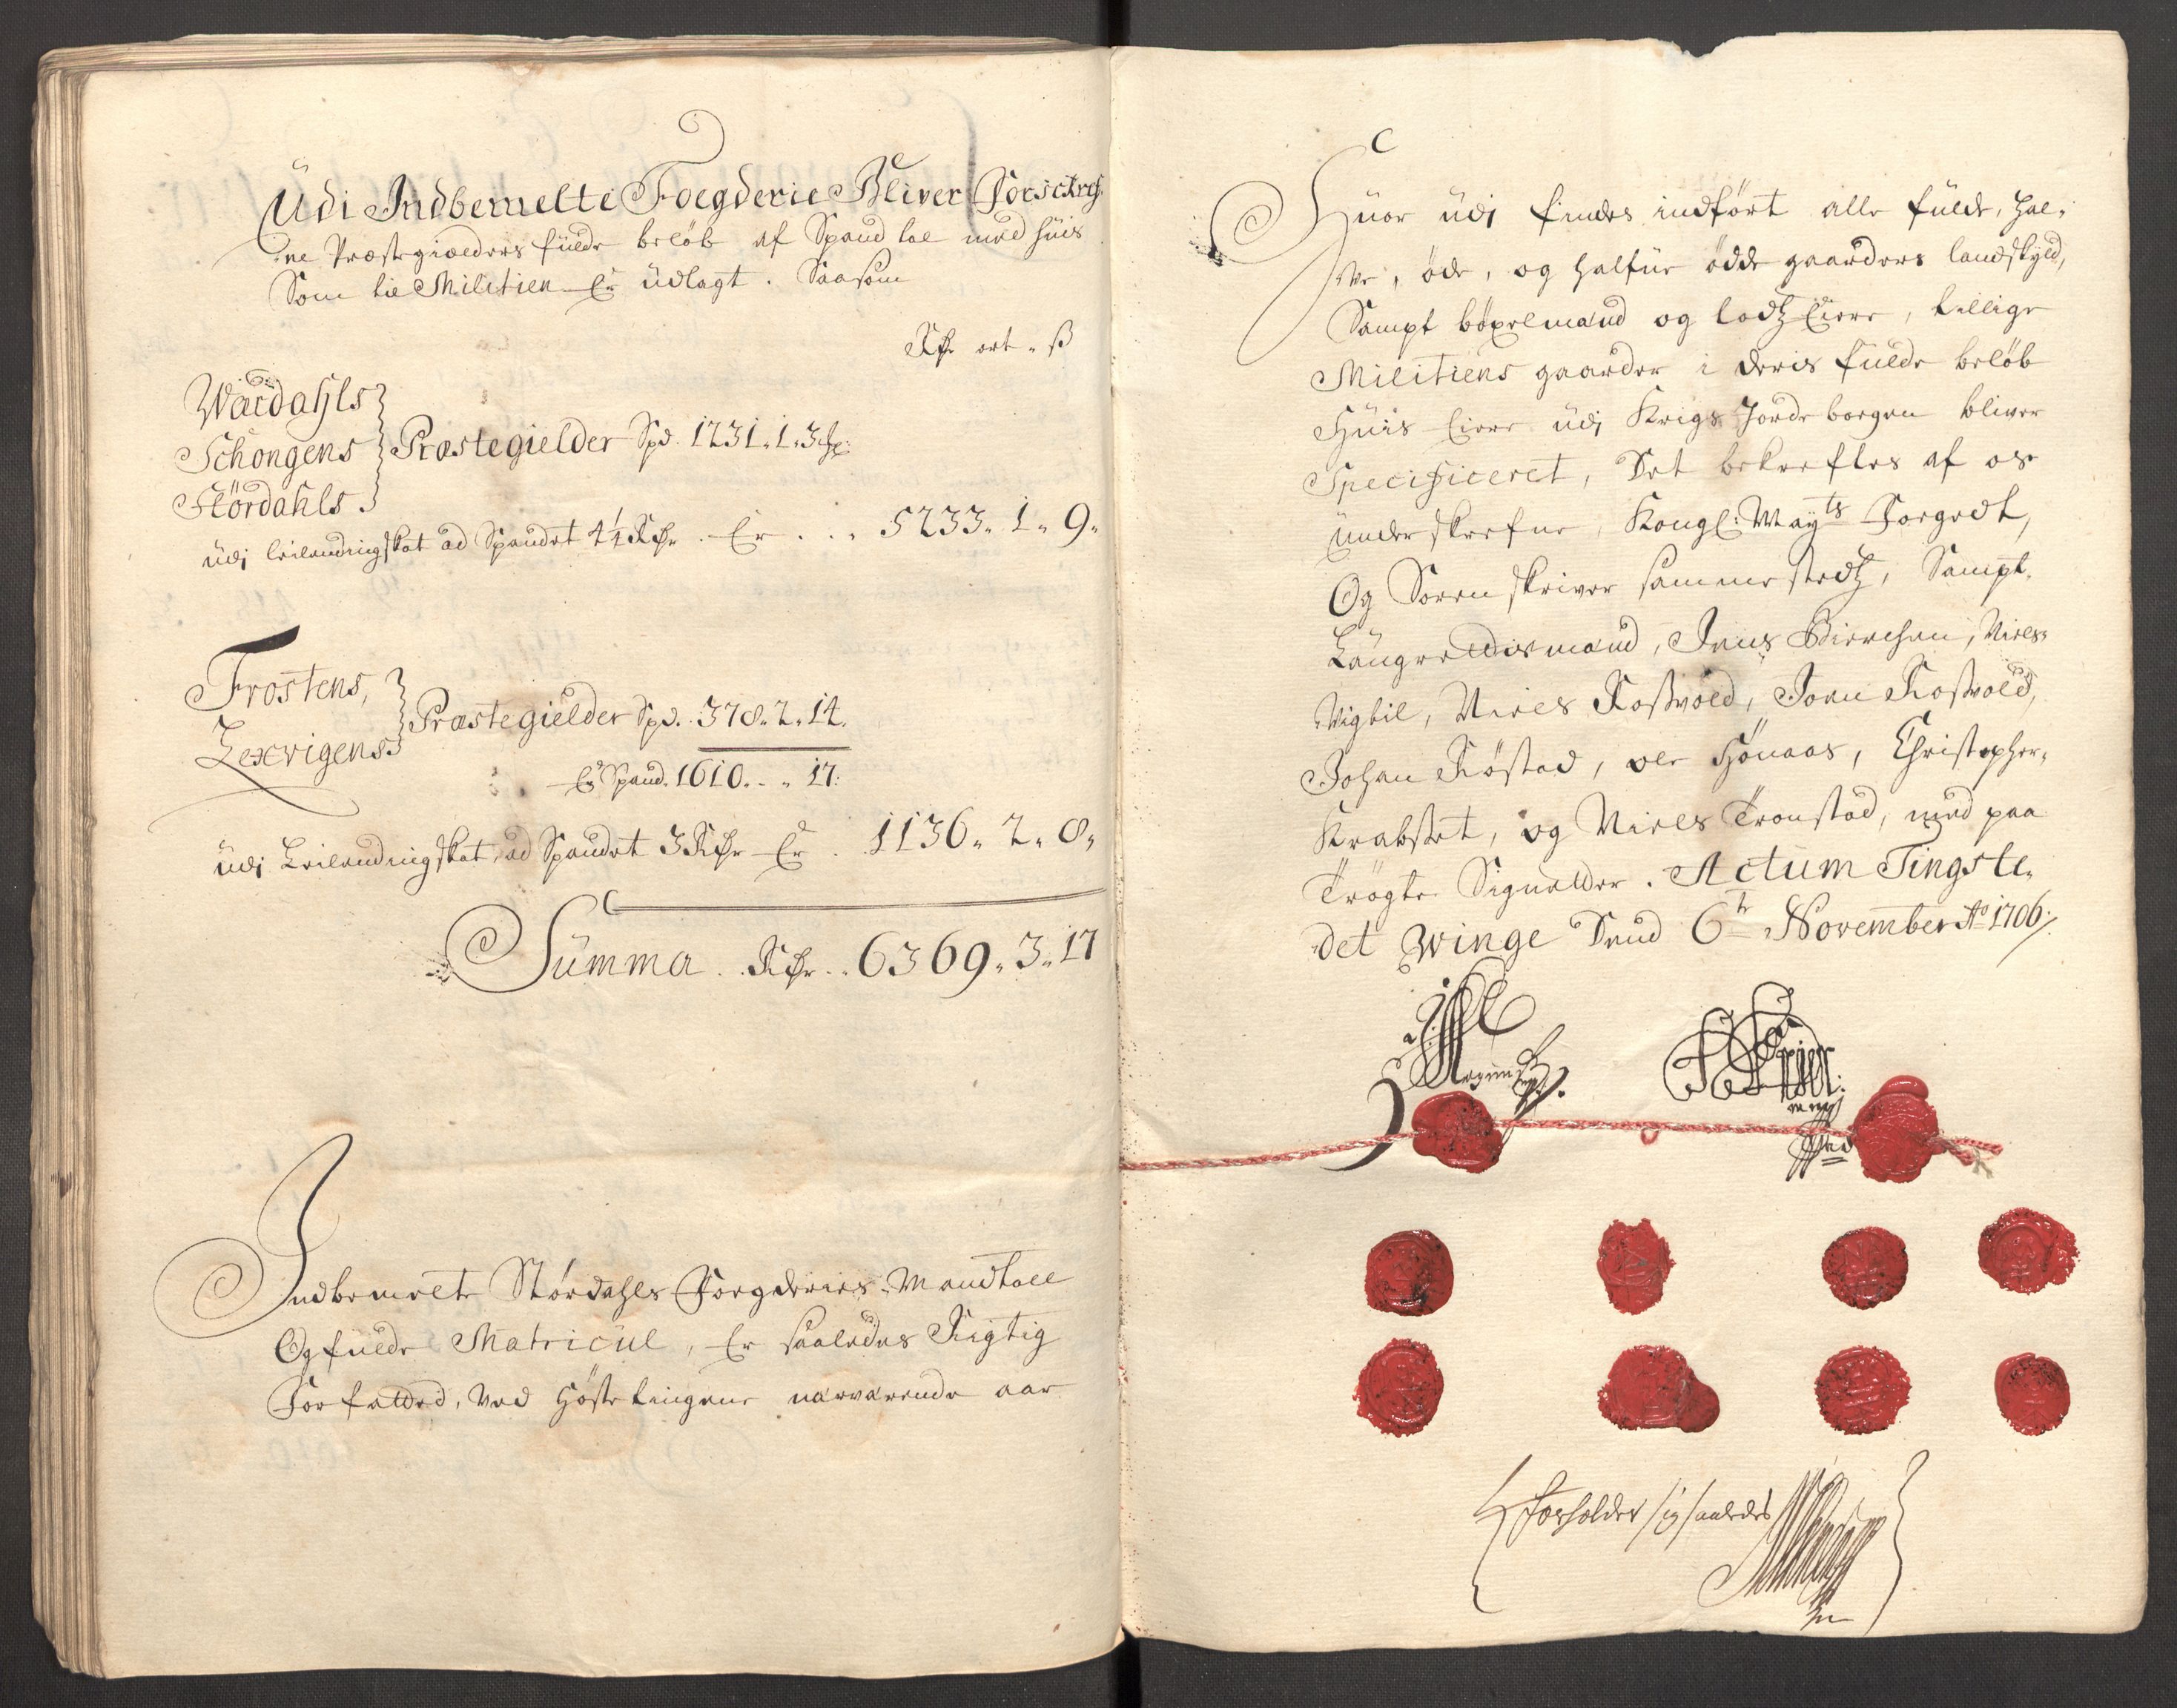 Udi Indbemelte Foegderie Bliver Forschref:
ne Præstegiælders fulde beløb af Spand tal med huis
Som til Militien Er udlagt. Saasom
Rdr ort. ß
Wærdahls
Schongens Præstegielder Spd. 1231. 1. 3
Størdahls
udj leilendingskat ad Spandet 4¼ Rdr. Er . . . 5233. 1. 9.
Frostens,
Lexvigens Præstegielder Spd. 378. 2. 14.
Er Spand. 1610. - . 17:
udi Leilendingskat, ad Spandet 3 Rdr Er . 1136. 2. 8.
Summa . . Rdr . . 6369. 3. 17
Indbemelte Størdahls Foegderies Mandtall
Og fulde Matricul, Er saaledes Rigtig
Forfatted, ved Høste tingene nærværende aar
Huor udj findes indført alle fulde, hal-
fve, øde, og halfue ødde gaarders landskyld,
Sampt böxelmænd og lodz Eiere, tillige
Militiens gaarder i deris fulde beløb
Huis Eiere udj Krigs Jorde bogen bliver
Specificeret, Det bekreftes af os
underskrefne, Kongl: Mayts Foegedt,
Og Sorenskriver sammestedz, Sampt.
Laugrettismænd, Jens Bierchen, Niels
Vigtil, Niels Roßvold, Joen Roßvold,
Johan Røstad, ole Hönaas, Christopher
Krabset, og Niels Tronstad, med paa
Trögte Signetter. Actum Tingste-
det Winge Dend 6te November Ao 1706/.
Forholder sig saaledes